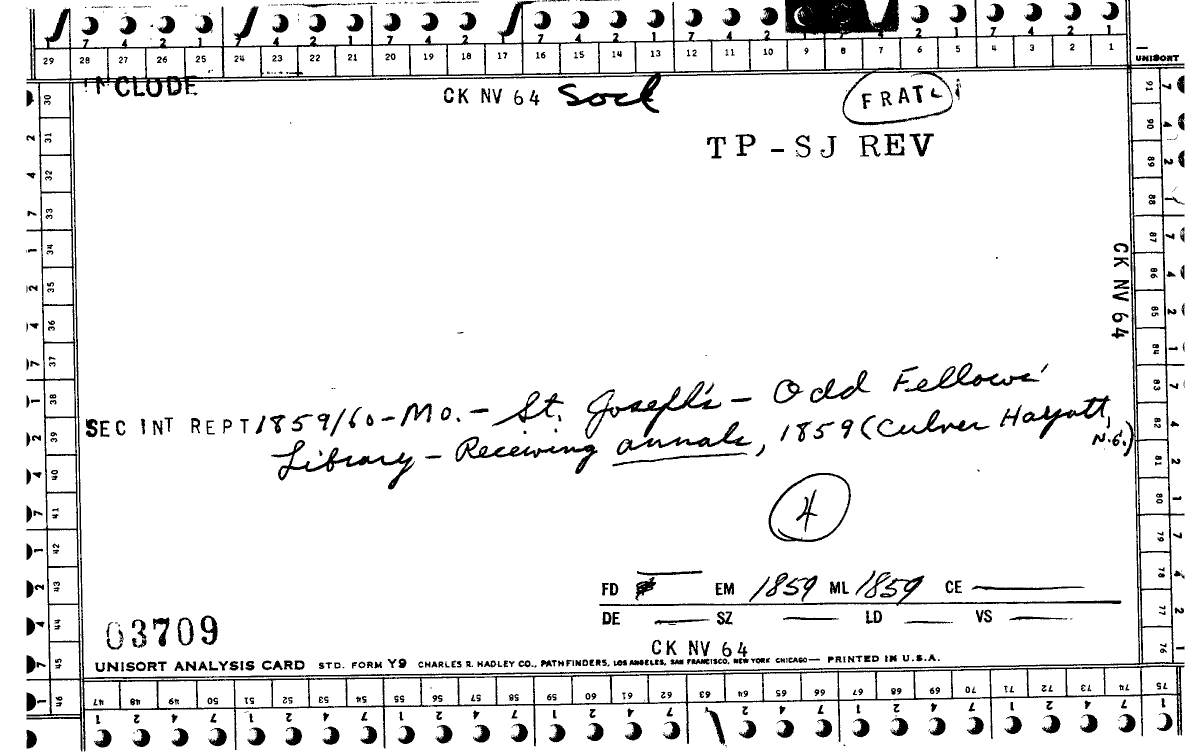 7 4 2 1 7 4 2 1 7 4 2 1 7 4 2 1 7 4 2 1 7 4 2 1
29 28 27 26 25 24 23 22 21 20 19 18 17 16 15 14 13 12 11 10 9 8 7 6 5 4 3 2 1
UNISORT
INCLODE
CK NV 64 Socl
FRAT
TP-SJ REV
CK NV 64
SEC INT REPT 1859/60-Mo.- St. Joseph's - Odd Fellows'
Library - Receiving annals, 1859 (Culver
4
FD EM 1859 ML 1859 CE
DE SZ LD VS
03709
CK NV 64
UNISORT ANALYSIS CARD STD. FORM Y9 CHARLES R. HADLEY CO., PATHFINDERS, LOS ANGELES, SAN FRANCISCO, NEW YORK CHICAGO— PRINTED IN U.S.A.
30 31 32 33 34 35 36 37 38 39 40 41 42 43 44 45 46
91 90 89 88 87 86 85 84 83 82 81 80 79 78 77 76
47 48 49 50 51 52 53 54 55 56 57 58 59 60 61 62 63 64 65 66 67 68 69 70 71 72 73 74 75